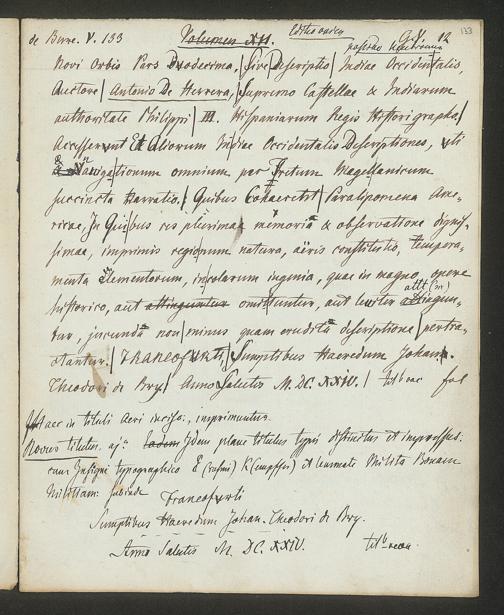 de Bure. V. 133 Volumen XII. Editio unica G. V. 12 133
Novi Orbis Pars Duodecima, | Sive Descriptio | Indiae Occidentalis,
Auctore | Antonio De Herrera, | Supremo Castellae & Indiarum
authoritate Philippi | III. Hispaniarum Regis Historiographo. |
Accesserunt Et Aliorum Indiae Occidentalis Descriptiones, uti
& Navigationum omnium per Fretum Magellanicum
succincta Narratio. | Quibus Cohaerent | Paralipomena Ame-
ricae, In Quibus res plurimae memoriâ & observatione dignis-
simae, imprimis regionum natura, aëris constitutio, tempera-
menta Elementorum, incolarum ingenia, quae in magno opere
historico, aut attinguntur omittuntur, aut leviter attingun-
tur, jucundâ non | minus quam eruditâ descriptione | pertra-
ctantur. | FRANCOFURTI, | Sumptibus Haeredum Johan.
Theodori de Bry. | Anno Salutis M. DC. XXIV. | fol
Haec in tituli aeri inciso, imprimuntur
Novus titulus, Idem plane titulus typis distinctus et impressus.
cum Insigni typographico E (rasmi) K (empffer) et lemmate Milita Bonam
Militiam: subinde Francofurti
Sumptibus Haeredum Johan. Theodori de Bry.
Anno Salutis M. DC. XXIV.